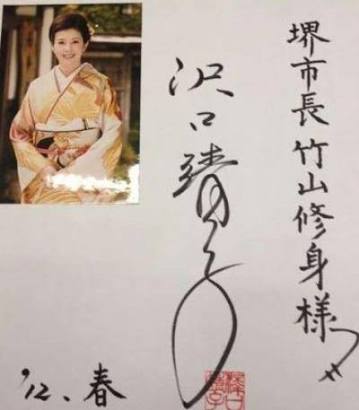 堺市長竹山修身様へ
沢口靖子
'12、春